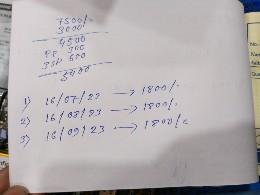 7500/-
3000/-
4500
PF 300
ESI 600
5400
1) 16/07/23 → 1800/-
2) 16/08/23 → 1800/-
3) 16/09/23 → 1800/-